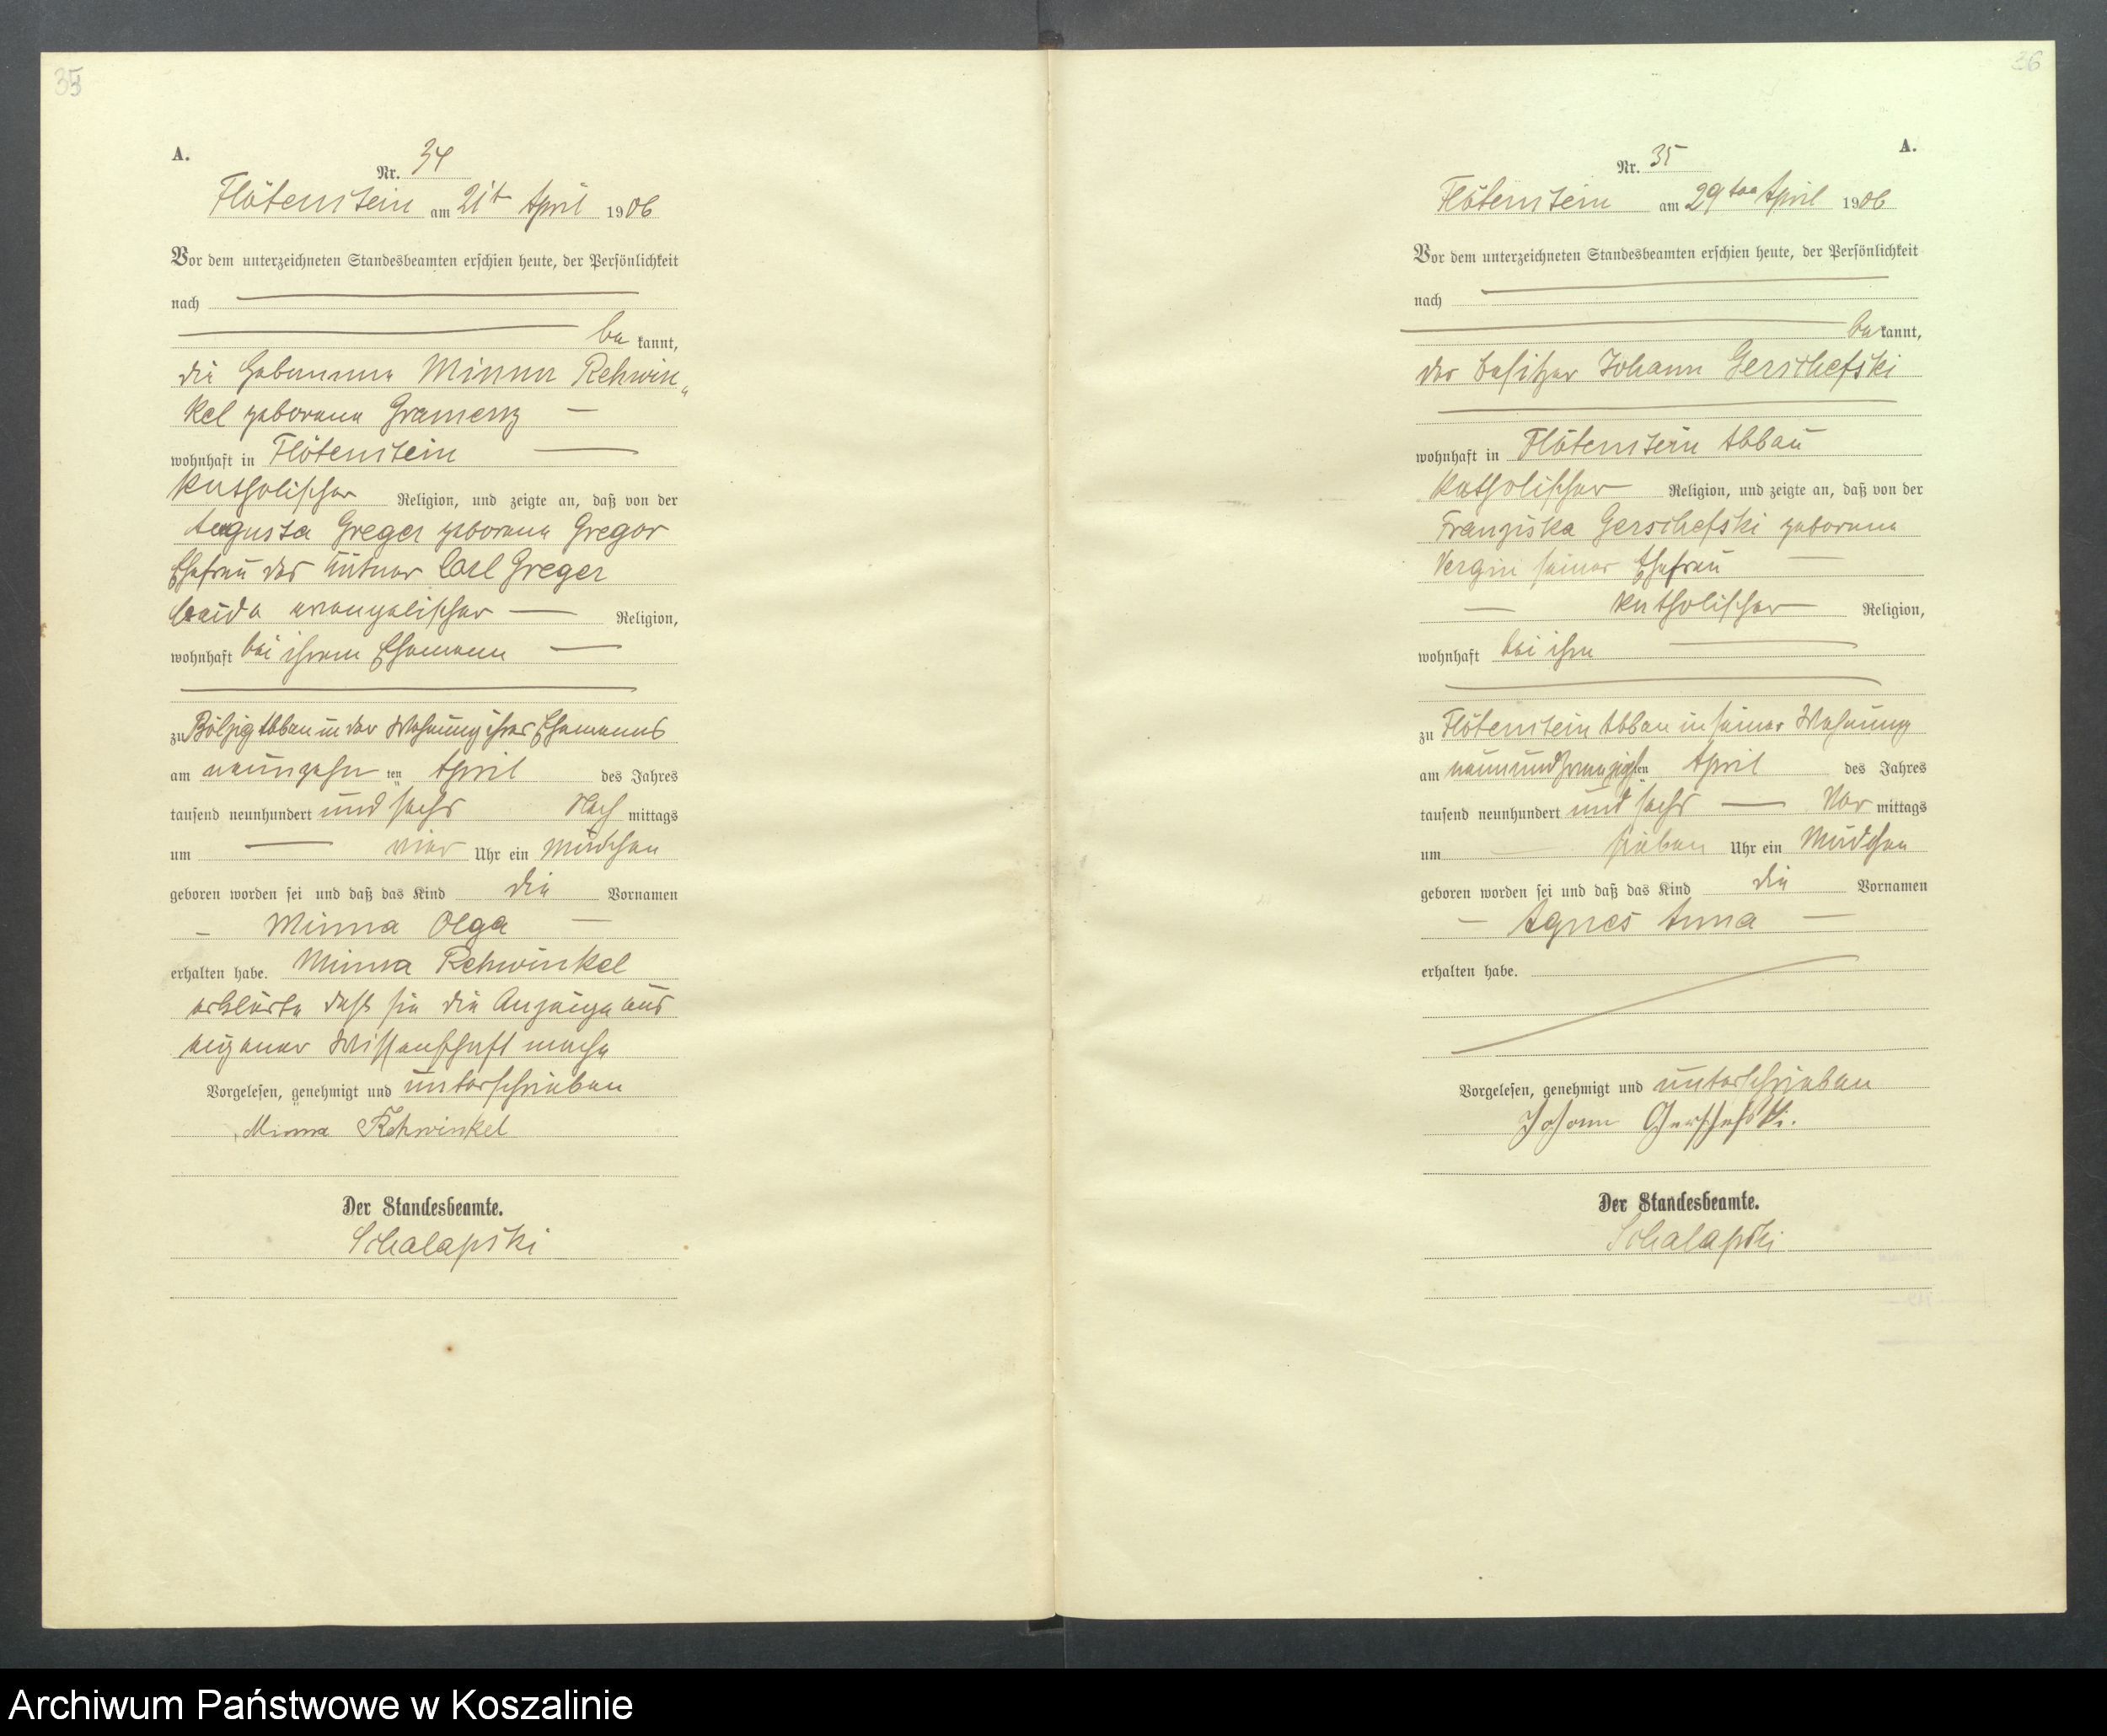 35
A.
Nr. 34
Flötenstein am 21t April 1906
Vor dem unterzeichneten Standesbeamten erschien heute, der Persönlichkeit
nach
be kannt,
die Hebamme Minna Rehwin„
kel geborene Gramenz
wohnhaft in Flötenstein
katholischer Religion, und zeigte an, daß von der
Augusta Greger geborene Gregor
Ehefrau des Carl Greger
beide evangelischer Religion,
wohnhaft bei ihrem Ehemann
zu Bölzig Abbau in der Wohnung ihres Ehemanns
am neunzehn ten April des Jahres
tausend neunhundert und sechs Nach mittags
um vier Uhr ein Mädchen
geboren worden sei und daß das Kind die Vornamen
Minna Olga
erhalten habe. Minna Rehwinkel
erklärte daß sie die Anzeige aus
eigener Wissenschaft mache
Vorgelesen, genehmigt und unterschrieben
Minna Rehwinkel
Der Standesbeamte.
Schalapski
36
A.
Nr. 35
Flötenstein am 29ten April 1906
Vor dem unterzeichneten Standesbeamten erschien heute, der Persönlichkeit
nach
be kannt,
der Besitzer Johann Gerschefski
wohnhaft in Flötenstein Abbau
katholischer Religion, und zeigte an, daß von der
Franziska Gerschefski geborene
Vergin seiner Ehefrau
katholischer Religion,
wohnhaft bei ihm
zu Flötenstein Abbau in seiner Wohnung
am neunundzwanzigsten April des Jahres
tausend neunhundert und sechs Vor mittags
um sieben Uhr ein Mädchen
geboren worden sei und daß das Kind die Vornamen
Agnes Anna
erhalten habe.
Vorgelesen, genehmigt und unterschrieben
Johann Gerschefski.
Der Standesbeamte.
Schalapski
Archiwum Państwowe w Koszalinie